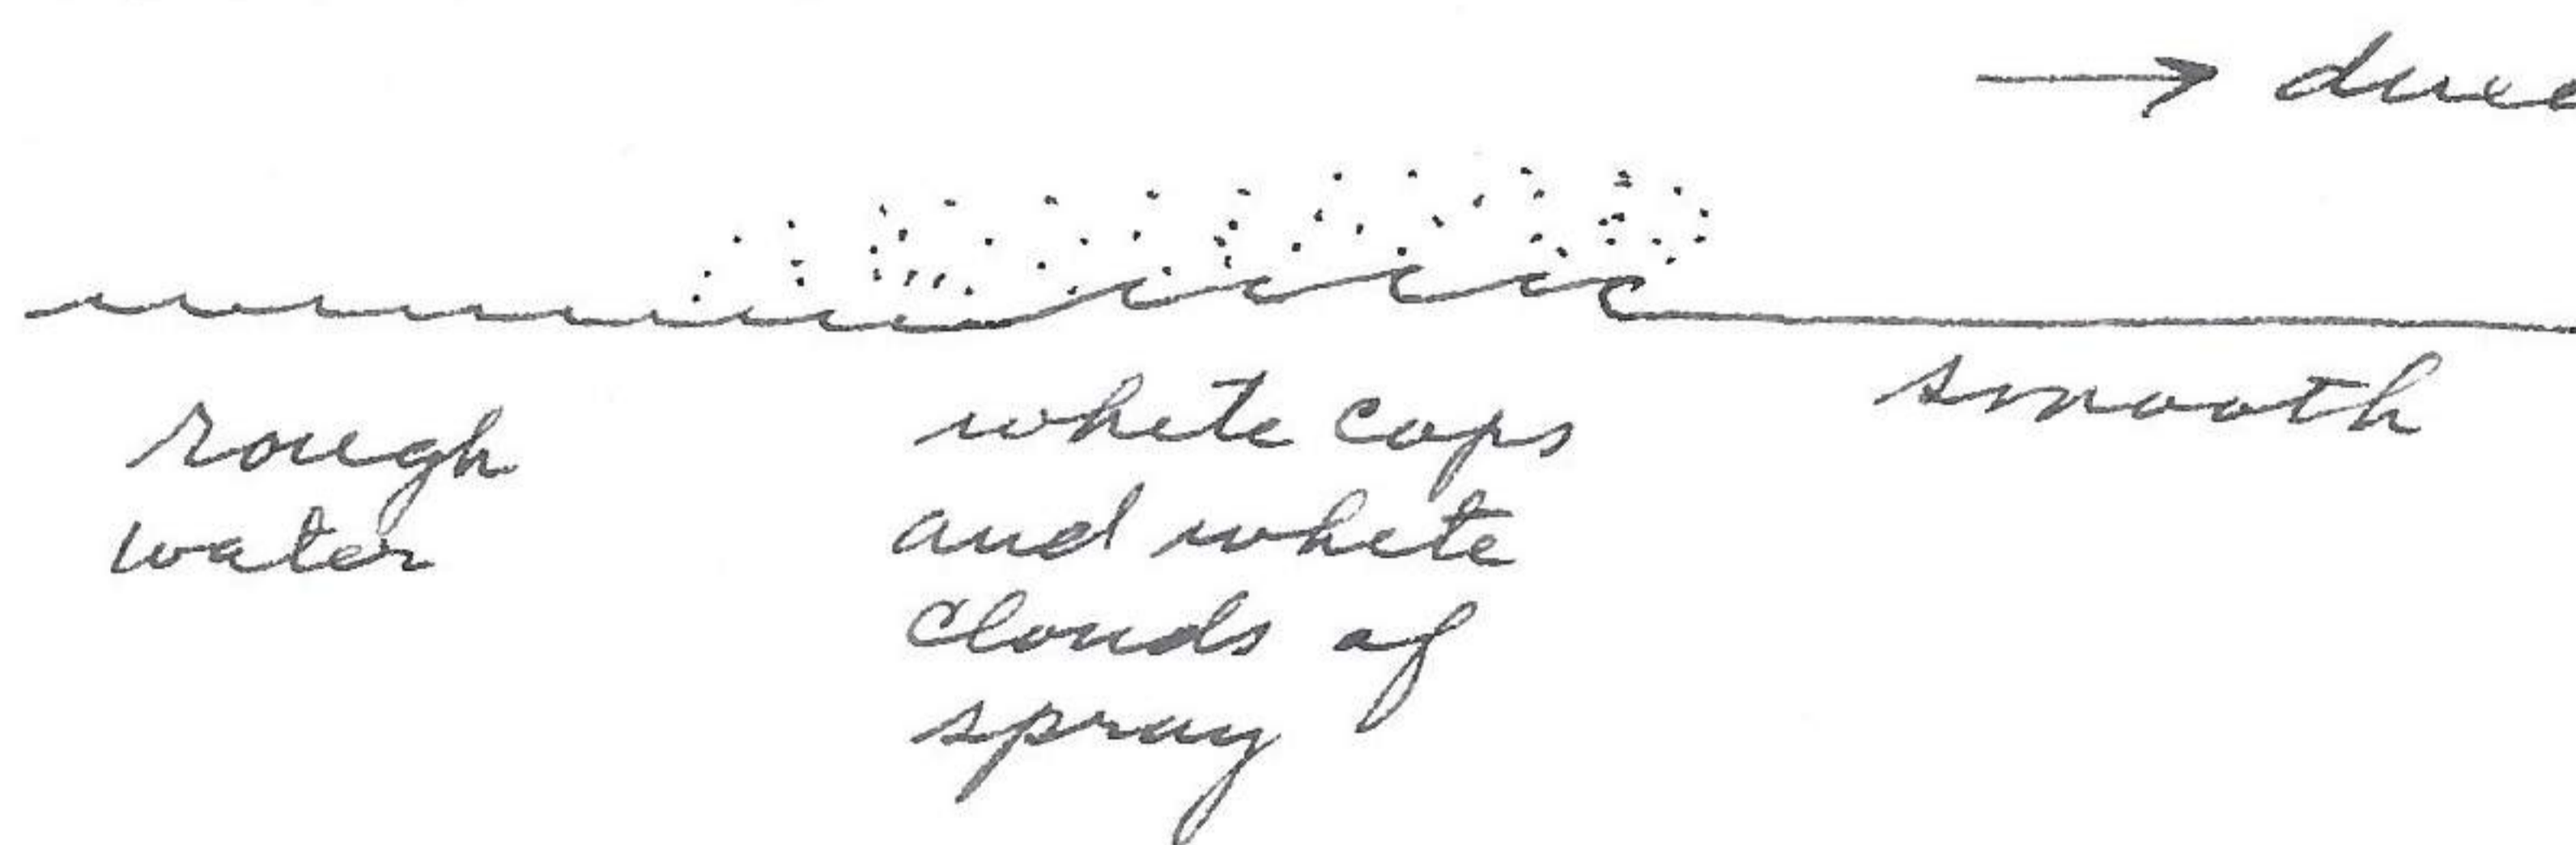 →
rough
water
white caps
and white
clouds of
spray
smooth